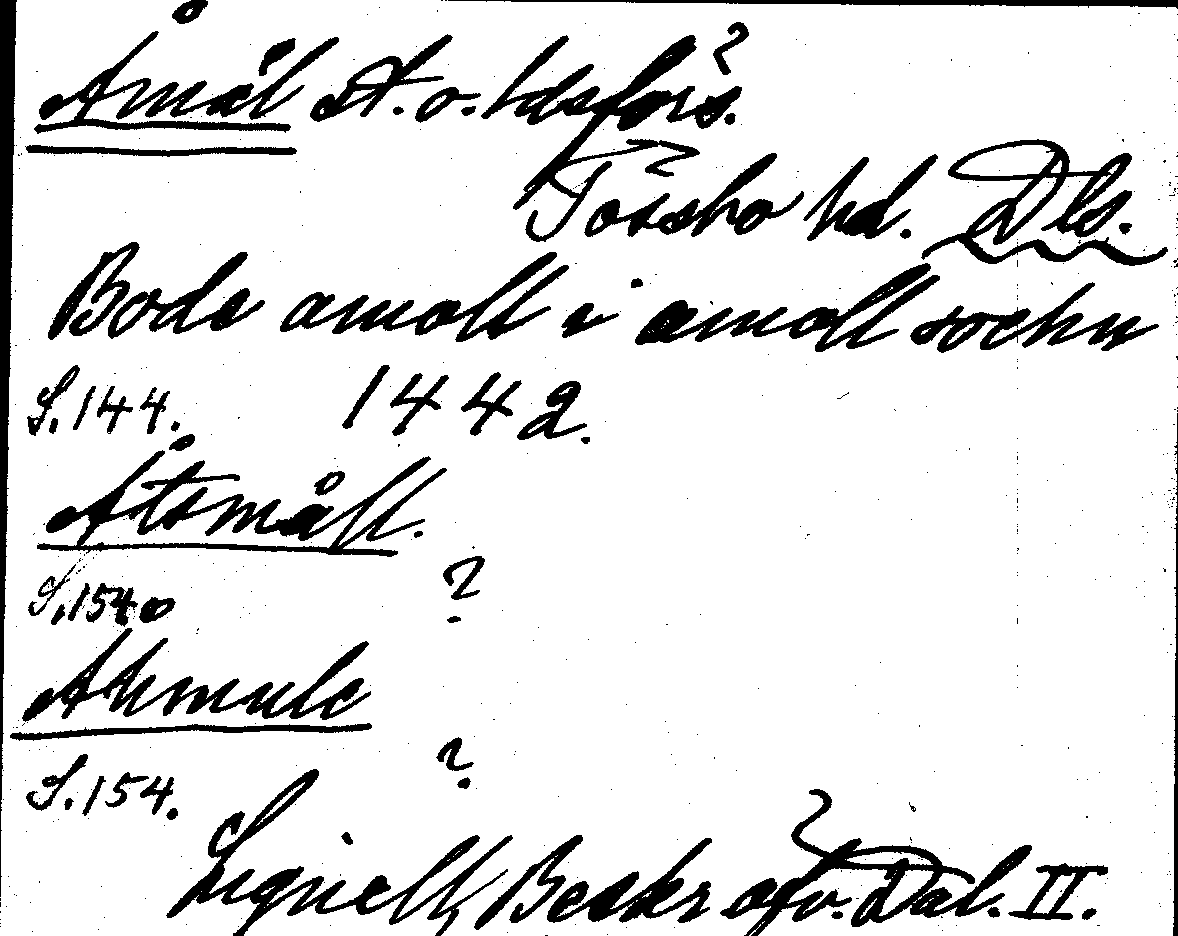 Åmål st. o. ldsförs.
Tössbo hd. Dls.
Bode amoll i amoll sochn
S. 144. 1442.
Åtsmåll.
S. 154. ?
Ahmule
S. 154. ?
Lignell, Beskr. öfv. Dal. II.